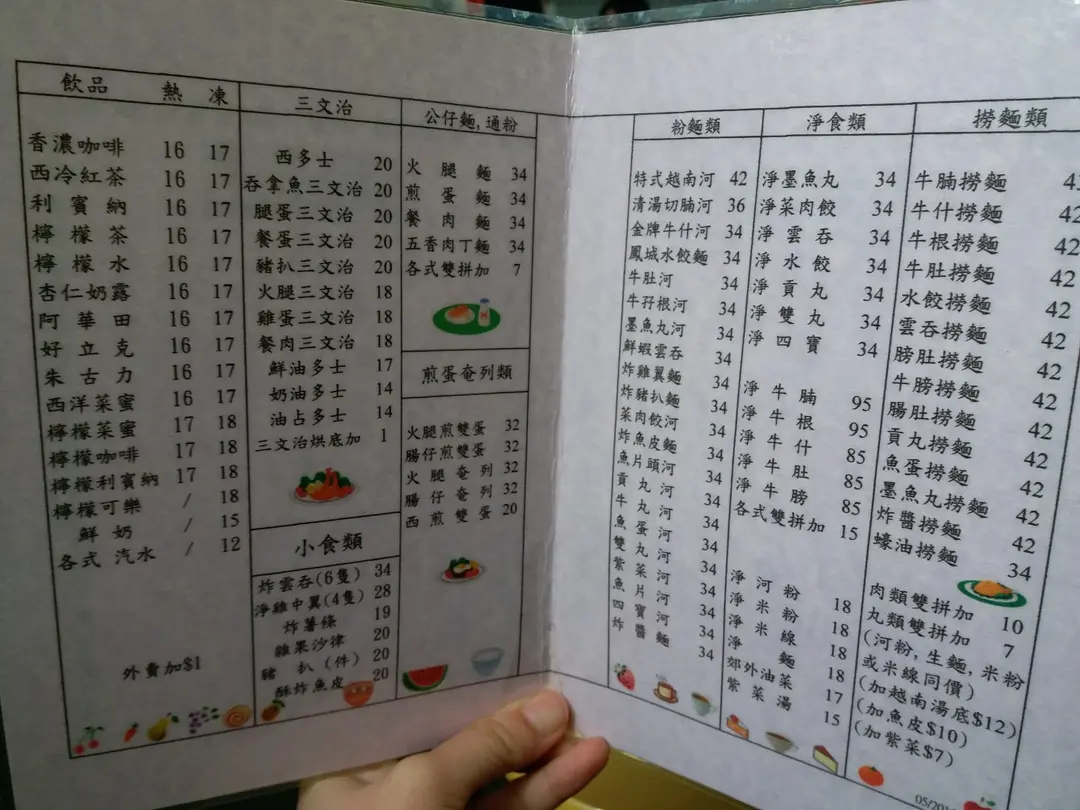 飲品 熱 凍
香濃咖啡 16 17
西冷紅茶 16 17
利賓納 16 17
檸檬茶 16 17
檸檬水 16 17
杏仁奶露 16 17
阿華田 16 17
好立克 16 17
朱古力 16 17
西洋菜蜜 16 17
檸檬菜蜜 17 18
檸檬咖啡 17 18
檸檬利賓納 17 18
檸檬可樂 / 18
鮮奶 / 15
各式 汽水 / 12
外賣加$1
三文治
西多士 20
吞拿魚三文治 20
腿蛋三文治 20
餐蛋三文治 20
豬扒三文治 20
火腿三文治 18
雞蛋三文治 18
餐肉三文治 18
鮮油多士 17
奶油多士 14
油占多士 14
三文治烘底加 1
小食類
炸雲吞(6隻) 34
淨雞中翼(4隻) 28
炸薯條 19
雜果沙律 20
豬 扒 (件) 20
酥炸魚皮 20
公仔麵, 通粉
火腿麵 34
煎蛋麵 34
餐肉麵 34
五香肉丁麵 34
各式雙拼加 7
煎蛋奄列類
火腿煎雙蛋 32
腸仔煎雙蛋 32
火腿奄列 32
腸仔奄列 32
西煎雙蛋 20
粉麵類
特式越南河 42
清湯切腩河 36
金牌牛什河 34
鳳城水餃麵 34
牛肚河 34
牛孖根河 34
墨魚丸河 34
鮮蝦雲吞 34
炸雞翼麵 34
炸豬扒麵 34
菜肉餃河 34
炸魚皮麵 34
魚片頭河 34
貢丸河 34
牛丸河 34
魚蛋河 34
雙丸河 34
紫菜河 34
魚片河 34
四寶河 34
炸醬麵 34
淨食類
淨墨魚丸 34
淨菜肉餃 34
淨雲吞 34
淨水餃 34
淨貢丸 34
淨雙丸 34
淨四寶 34
淨牛腩 95
淨牛根 95
淨牛什 85
淨牛肚 85
淨牛膀 85
各式雙拼加 15
淨河粉 18
淨米粉 18
淨米線 18
淨麵 18
郊外油菜 17
紫菜湯 15
撈麵類
牛腩撈麵
牛什撈麵 42
牛根撈麵 42
牛肚撈麵 42
水餃撈麵 42
雲吞撈麵 42
膀肚撈麵 42
牛膀撈麵 42
腸肚撈麵 42
貢丸撈麵 42
魚蛋撈麵 42
墨魚丸撈麵 42
炸醬撈麵 42
蠔油撈麵 34
肉類雙拼加 10
丸類雙拼加 7
(河粉, 生麵, 米粉
或米線同價)
(加越南湯底$12)
(加魚皮$10)
(加紫菜$7)